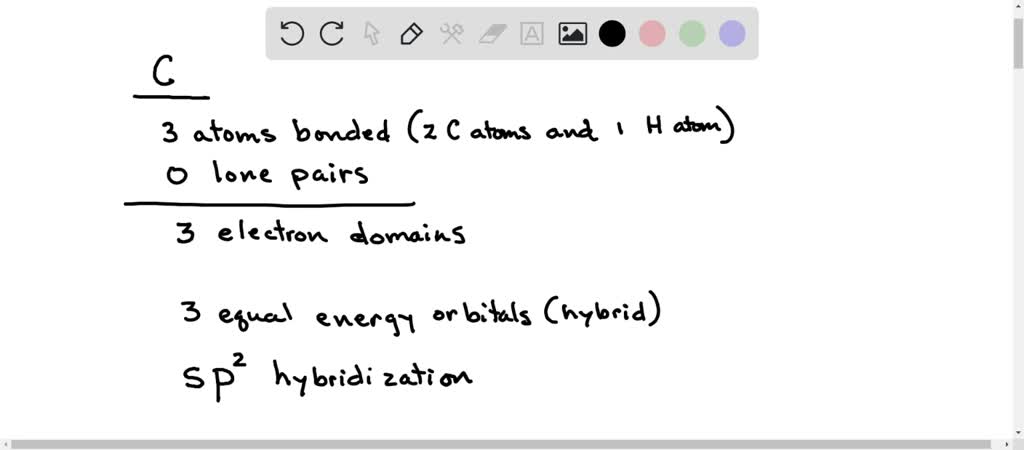 C
3 atoms bonded (2 C atoms and 1 H atom)
0 lone pairs
3 electron domains
3 equal energy orbitals (hybrid)
sp² hybridization